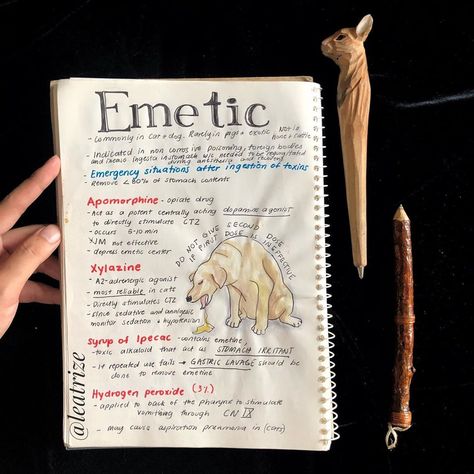 Emetic
- Commonly in cat + dog. Rarely in pigs + exotic Not in
horse + cattle
- Indicated in non corrosive poisoning, foreign bodies
and ingesta in stomach w/c needed to be regurgitated
during anesthesia and recovery
- Emergency situations after ingestion of toxins
- Remove < 80% of stomach contents
Apomorphine - opiate drug
- Act as a potent centrally acting dopamine agonist
to directly stimulate CTZ
- occurs 5-10 min
- IM not effective
- depress emetic center
DO NOT GIVE SECOND DOSE
IF FIRST DOSE IS INEFFECTIVE
Xylazine
- A2-adrenergic agonist
- most reliable in cats
- Directly stimulates CTZ
- Since sedative and analgesic
monitor sedation + hypotension
Syrup of Ipecac - contains emetine
- toxic alkaloid that act as STOMACH IRRITANT
- If repeated use fails → GASTRIC LAVAGE should be
done to remove emetine
Hydrogen peroxide (3%)
- applied to back of the pharynx to stimulate
vomiting through CN IX
- May cause aspiration pneumonia in (cats)
@leatrize